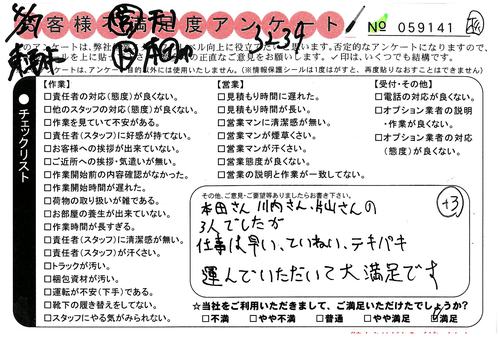 お客様 満足度アンケート
3239
№ 059141
本アンケートは、
ベル向上に役立て
います。否定的なアンケートになりますので、
ールを上に貼っ
の正直なご意見をお願いします。✓印は、いくつでも結構です。
アンケートは、アンケート目的以外には使用いたしません。(※情報保護シールは1度はがすと、再度貼りなおすことはできません)
●チェックリスト
【作業】
□責任者の対応(態度)が良くない。
□他のスタッフの対応(態度)が良くない。
□作業を見ていて不安がある。
□責任者(スタッフ)に好感が持てない。
□お客様への挨拶が出来ていない。
□ご近所への挨拶・気遣いが無い。
□作業開始前の内容確認がなかった。
□作業開始時間が遅れた。
□荷物の取り扱いが雑である。
□お部屋の養生が出来ていない。
□作業時間が長すぎる。
□責任者(スタッフ)に清潔感が無い。
□責任者(スタッフ)が汗くさい。
□トラックが汚い。
□梱包資材が汚い。
□運転が不安(下手)である。
□靴下の履き替えをしてない。
□スタッフにやる気がみられない。
【営業】
□見積もり時間に遅れた。
□見積もり時間が長い。
□営業マンに清潔感が無い。
□営業マンが煙草くさい。
□営業マンが汗くさい。
□営業態度が良くない。
□営業の説明と作業が一致してない。
【受付・その他】
□電話の対応が良くない。
□オプション業者の説明
・作業が良くない。
□オプション業者の対応
(態度)が良くない。
その他、ご意見・ご要望等ありましたらお書き下さい。
本田さん 川内さん 片山さんの
3人でしたが
仕事は早い、ていねい、テキパキ
運んでいただいて大満足です
+3
☆当社をご利用いただきまして、ご満足いただけたでしょうか?
□不満 □やや不満 □普通 □やや満足 ☑満足